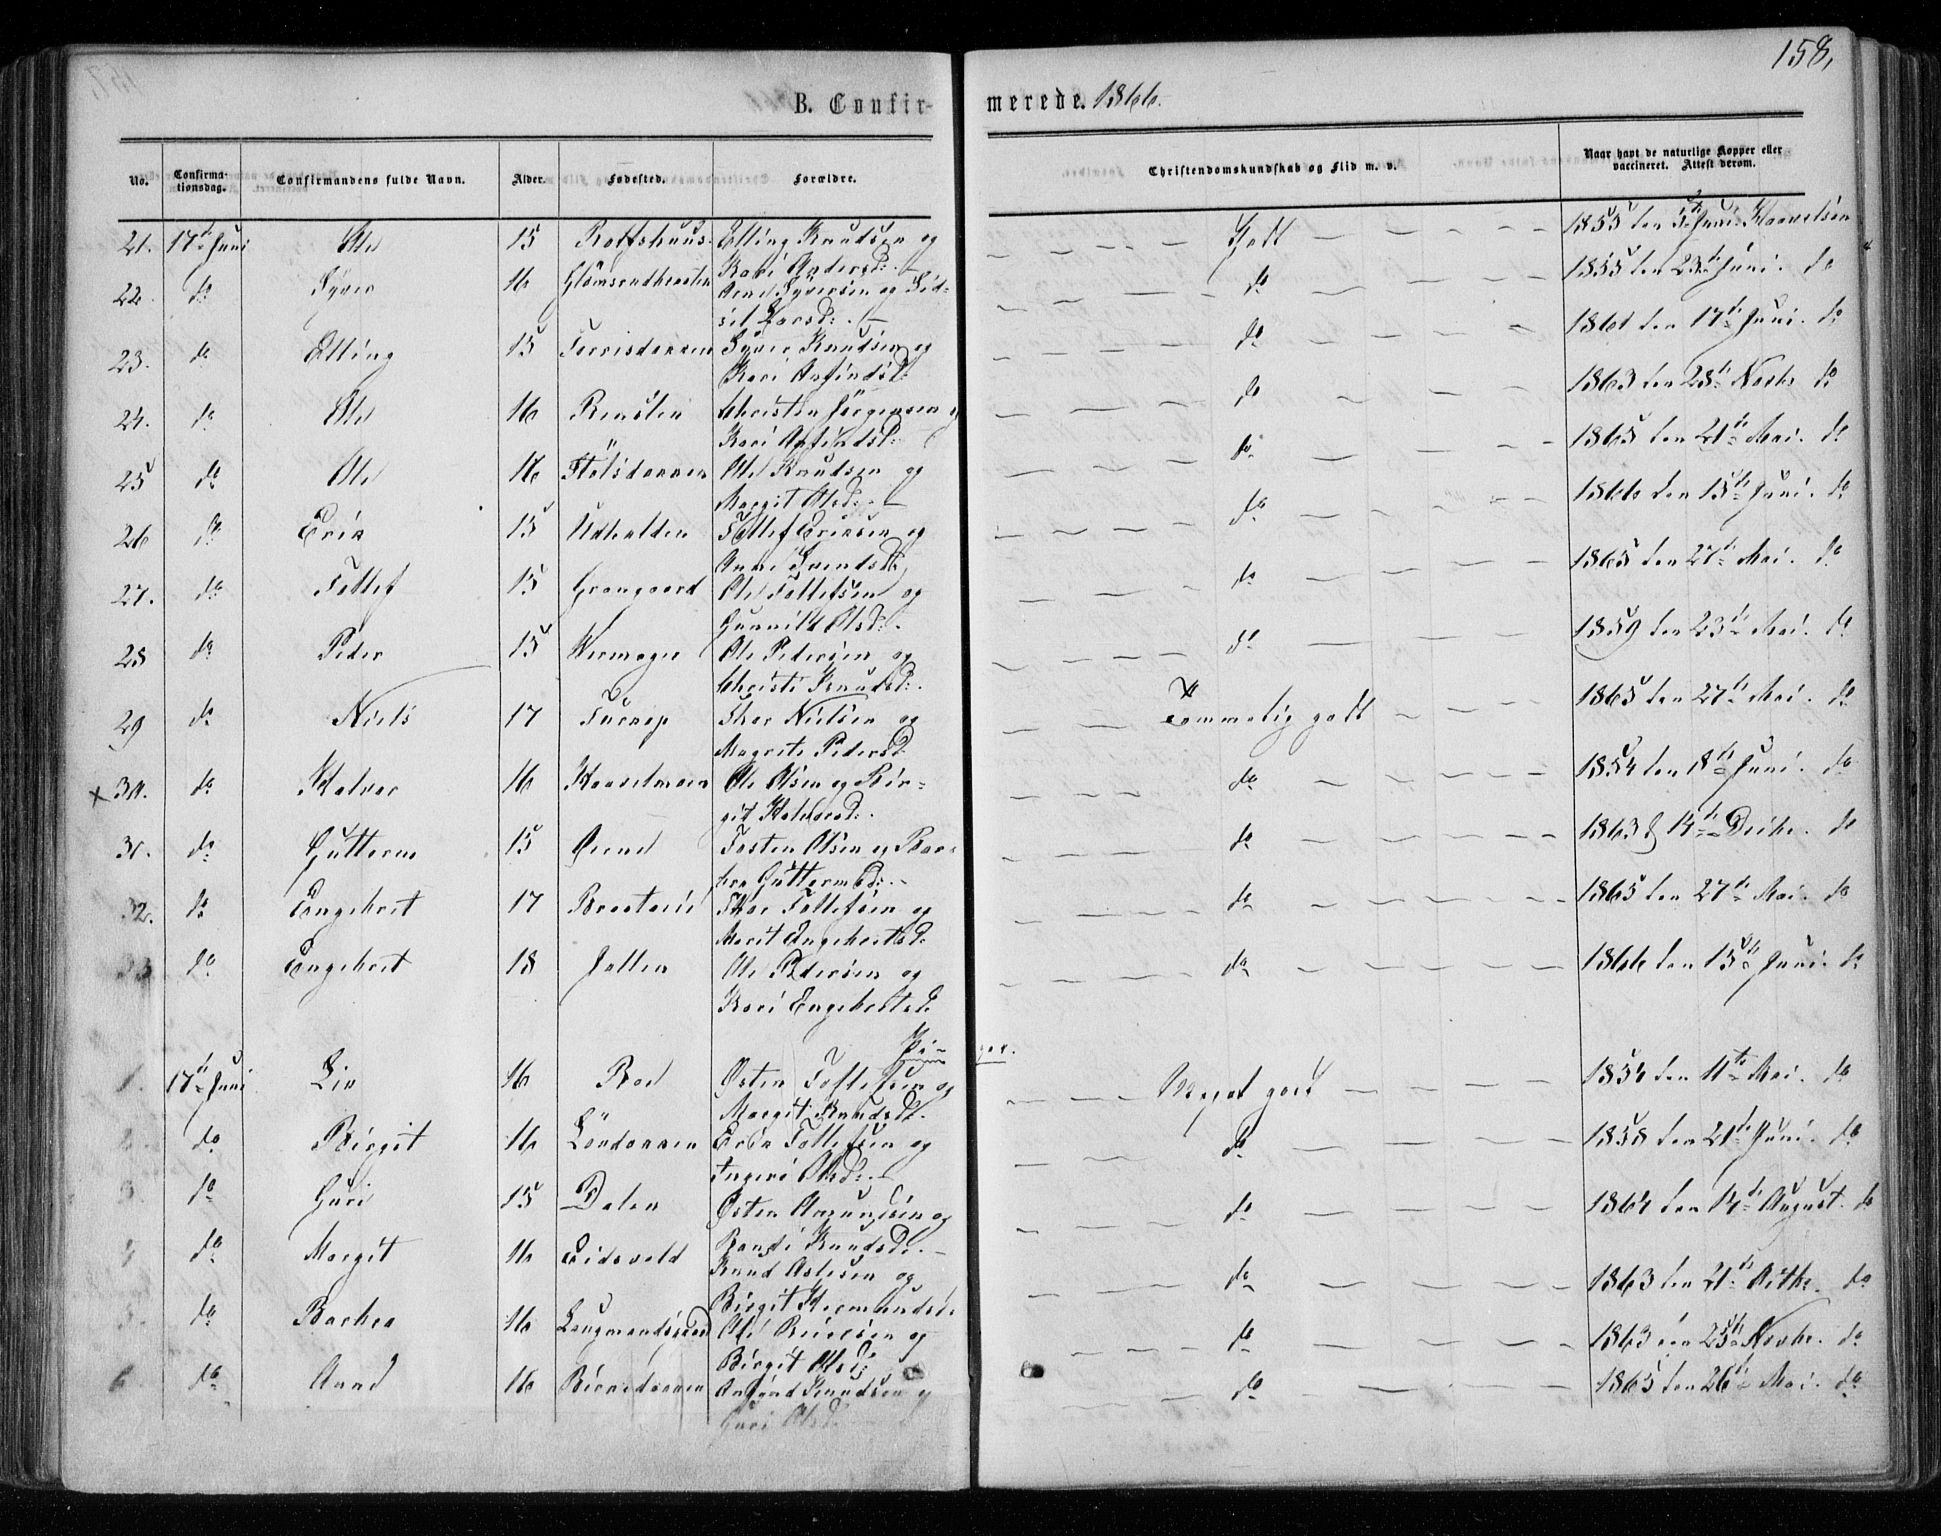 158,
B. Confir-
merede. 1866.
No. Confirma-tionsdag. Confirmandens fulde Navn. Alder. Fødested. Forældre. Christendomskundskab og Flid m. v. Naar havt de naturlige Kopper eller vaccineret. Attest derom.
21. 17de Juni Ole 15 Rolfshuus Elling Knudsen og Godt 1855 den 5te Juni
Kari Andersd:
22. do Syver 16 Arne Syversen og Sid- do 1855 den 23de Juni. do
sel Larsd:
23. do Elling 15 Syver Knudsen og do 1861 den 17de Juni. do
Kari Anfindsd:
24. do Ole 16 Rensten Christen Jørgensen og do 1863 den 28de Novbr do
Kari Anfindsd:
25 do Ole 16 Ole Knudsen og do 1865 den 21de Mai. do
Margit Olsd:
26 do Erik 15 Tollef Eriksen og do 1866 den 15de Juni. do
27. do Tollef 15 Grangaard Ole Tollefsen og do 1865 den 27de Mai. do
Gunnild Olsd:
28 do Peder 15 Ole Pedersen og do 1859 den 23de Mai. do
Christi Knudsd:
29 do Niels 17 Thor Nielsen og Temmelig godt 1865 den 27de Mai. do
Magrete Pedersd:
x 30. do Halvor 16 Ole Olsen og Bir- do 1854 den 18de Juni. do
git Halvorsd:
31. do Gutterm 15 Tosten Olsen og Bar- do 1863 d 14de Decbr. do
bra Guttermsd:
32. do Engebret 17 Thor Tollefsen og do 1865 den 27de Mai. do
Marit Engebretsd:
33 do Engebret 18 Ole Pedersen og do 1866 den 15de Juni. do
Kari Engebretsd:
Pi- ger.
1. 17de Juni Liv 16 Roe Østen Tollefsen og Meget godt 1854 den 11te Mai. do
Margit Knudsd:
2. do Birgit 16 Erik Tollefsen og do 1858 den 21de Juni. do
Ingeri Olsd:
3. do Guri 15 Dalen Østen Amundsen og do 1864 den 14de August. do
Randi Knudsd:
4 do Margit 16 Eidsvold Knud Aslesen og do 1863 den 21de Octbr. do
Birgit Hermundsd:
5. do Barbra 16 Langmandsgaard do 1863 den 25de Novbr. do
Birgit Olsd:
6 do Anne 16 Anfind Knudsen og do 1865 den 26de Mai. do
Guri Olsd: